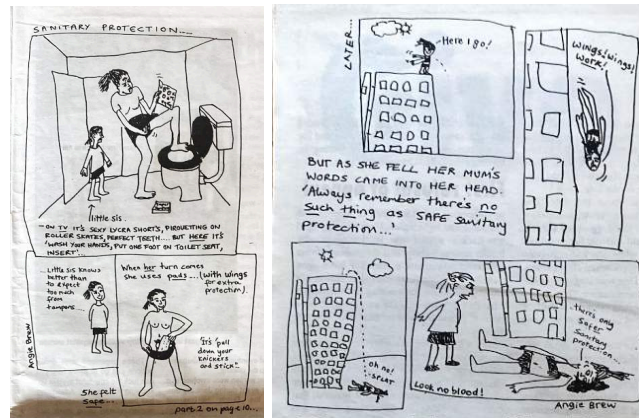 SANITARY PROTECTION.....
little sis.
- ON TV IT'S SEXY LYCRA SHORTS, PIROUETTING ON
ROLLER SKATES, PERFECT TEETH.... BUT HERE IT'S
'WASH YOUR HANDS, PUT ONE FOOT ON TOILET SEAT,
INSERT'...
Little sis knows
better than
to expect
too much
from
tampons...
Angie Brew
When her turn comes
she uses pads...(with wings
for extra
protection).
'It's 'pull
down your
knickers
and stick'.'
She felt
safe...
part 2 on page 10...
LATER...
Here I go!
WINGS! Wings!
WORK!
BUT AS SHE FELL HER MUM'S
WORDS CAME INTO HER HEAD.
'Always remember there's no
such thing as SAFE sanitary
protection...'
Oh no!
-SPLAT
...there's only
safer
sanitary
protection...
Look no blood!
Angie Brew